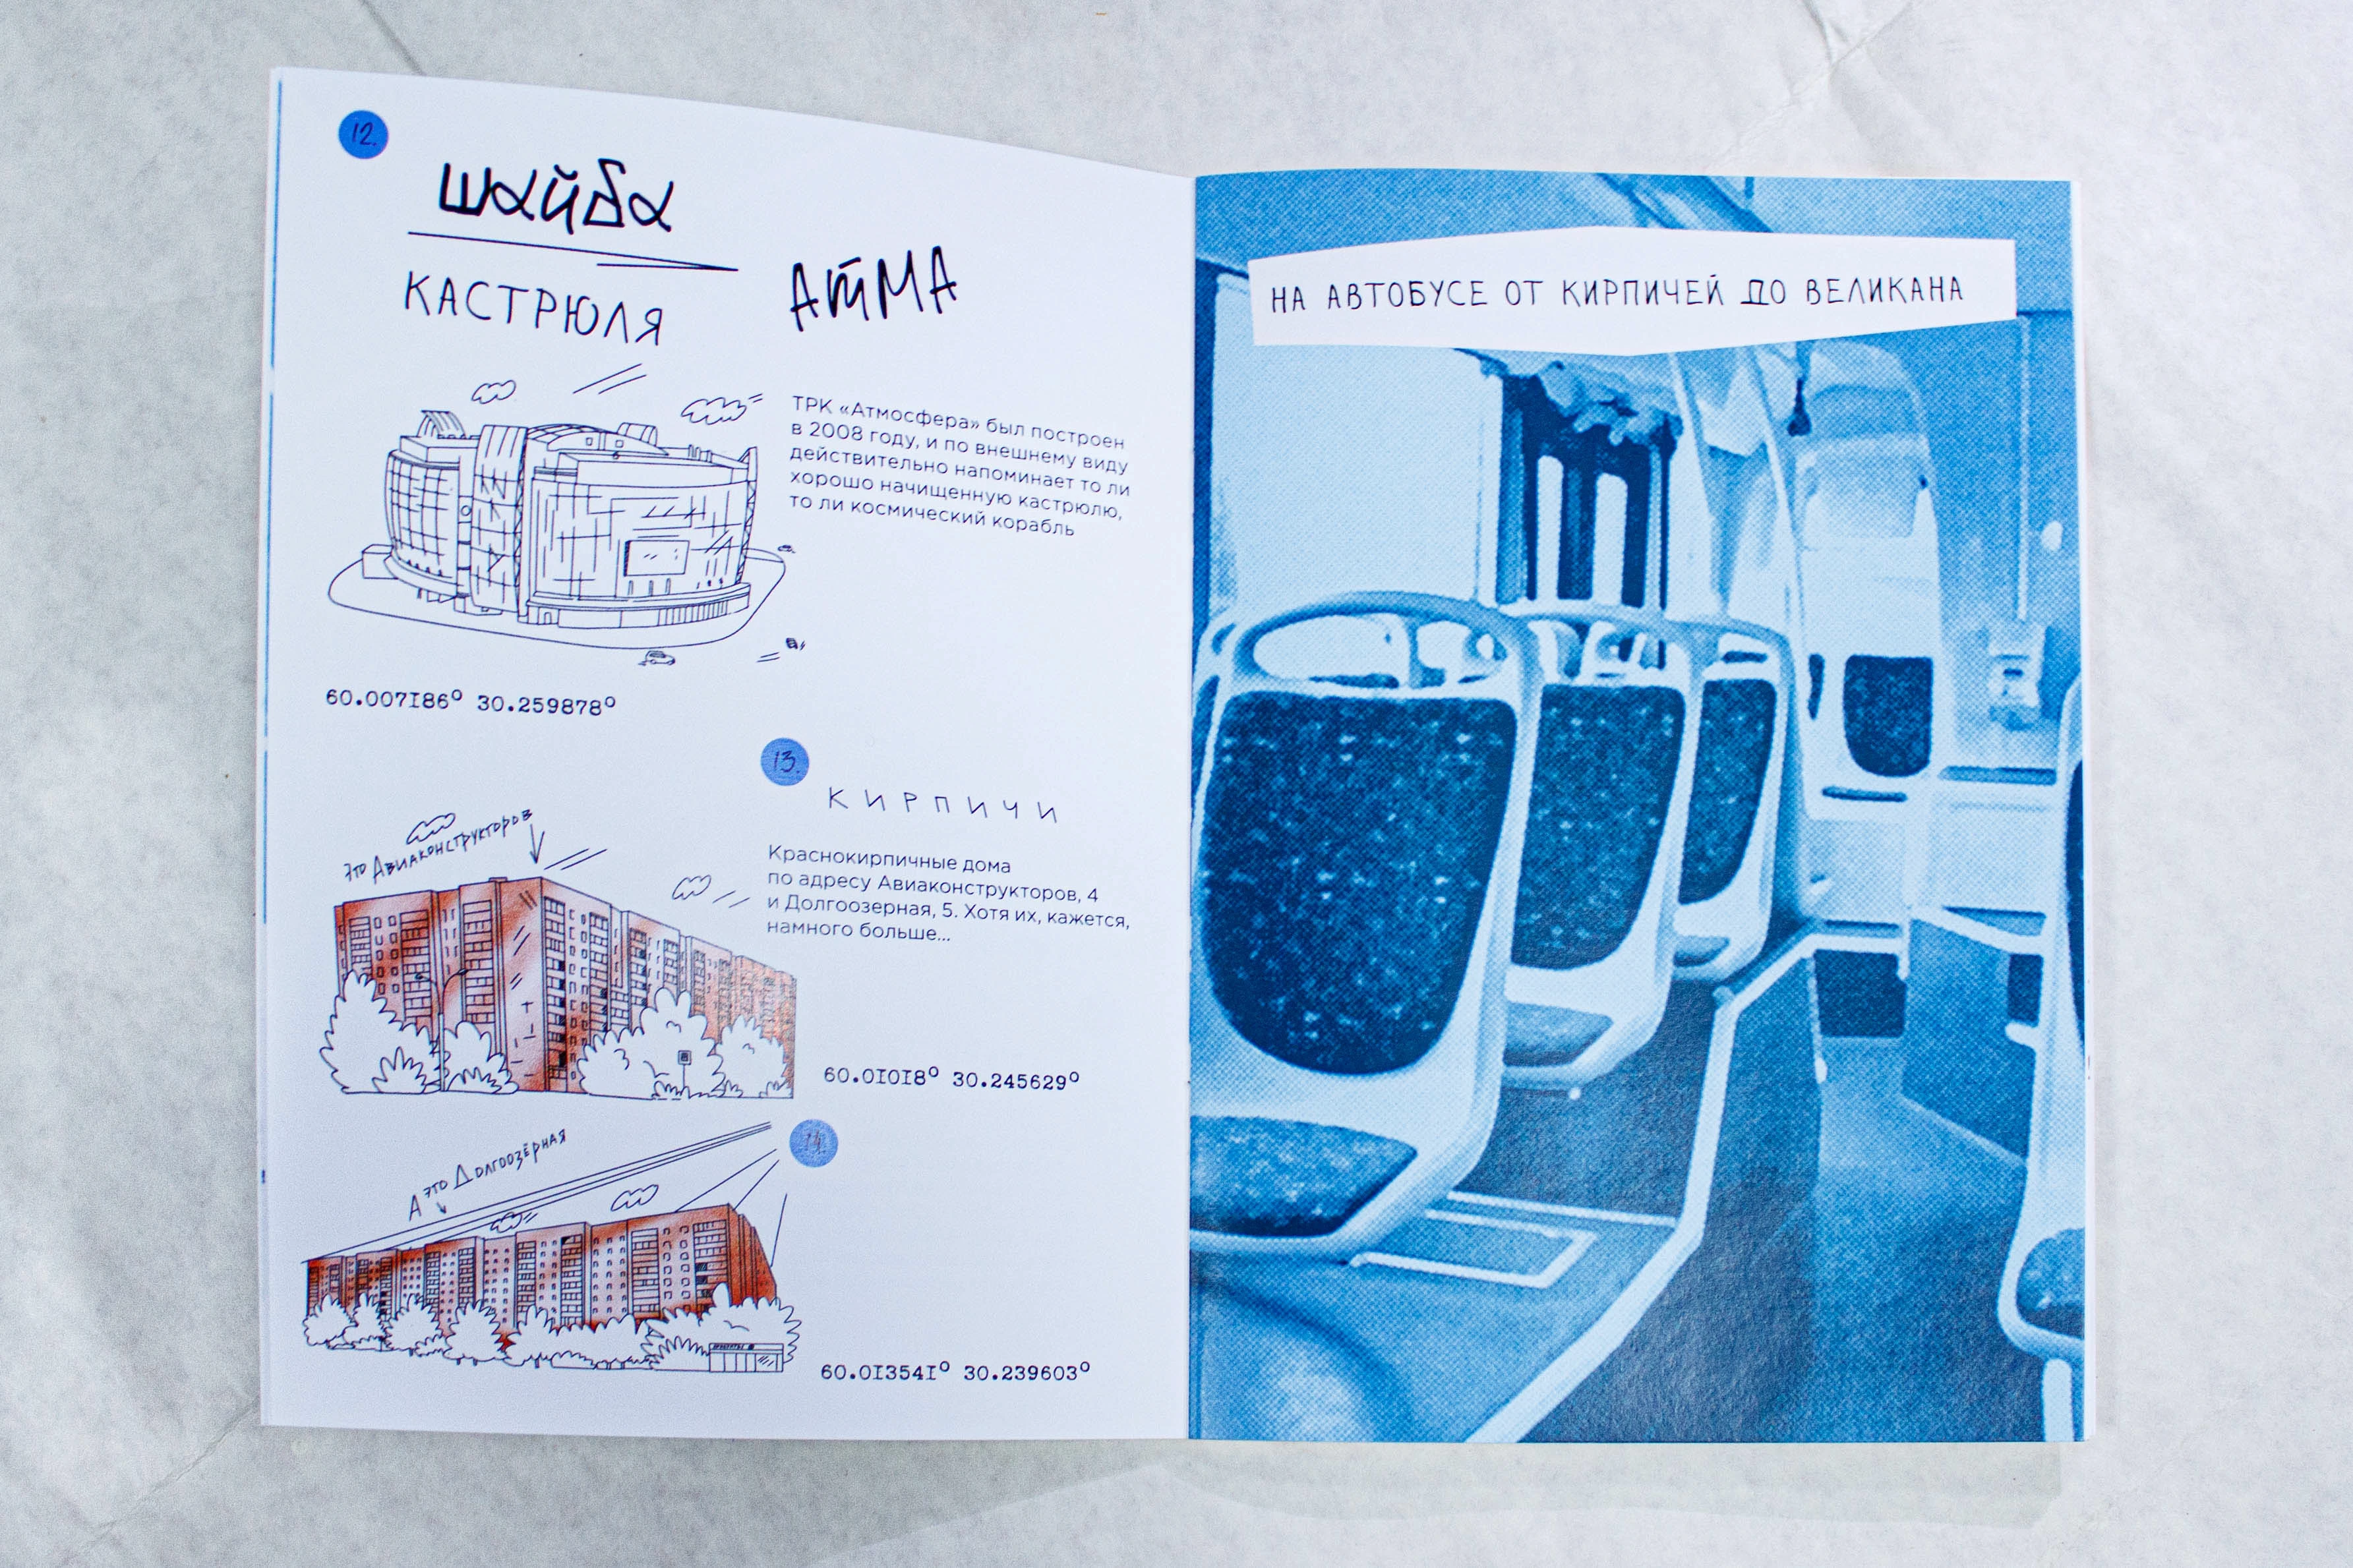 12.
шайба
КАСТРЮЛЯ
АТМА
ТРК «Атмосфера» был построен
в 2008 году, и по внешнему виду
действительно напоминает то ли
хорошо начищенную кастрюлю,
то ли космический корабль
60.007I86° 30.259878°
13.
КИРПИЧИ
Это Авиаконструкторов
Краснокирпичные дома
по адресу Авиаконструкторов, 4
и Долгоозерная, 5. Хотя их, кажется,
намного больше...
60.0I0I8° 30.245629°
14.
А это Долгоозёрная
60.0I354I° 30.239603°
НА АВТОБУСЕ ОТ КИРПИЧЕЙ ДО ВЕЛИКАНА